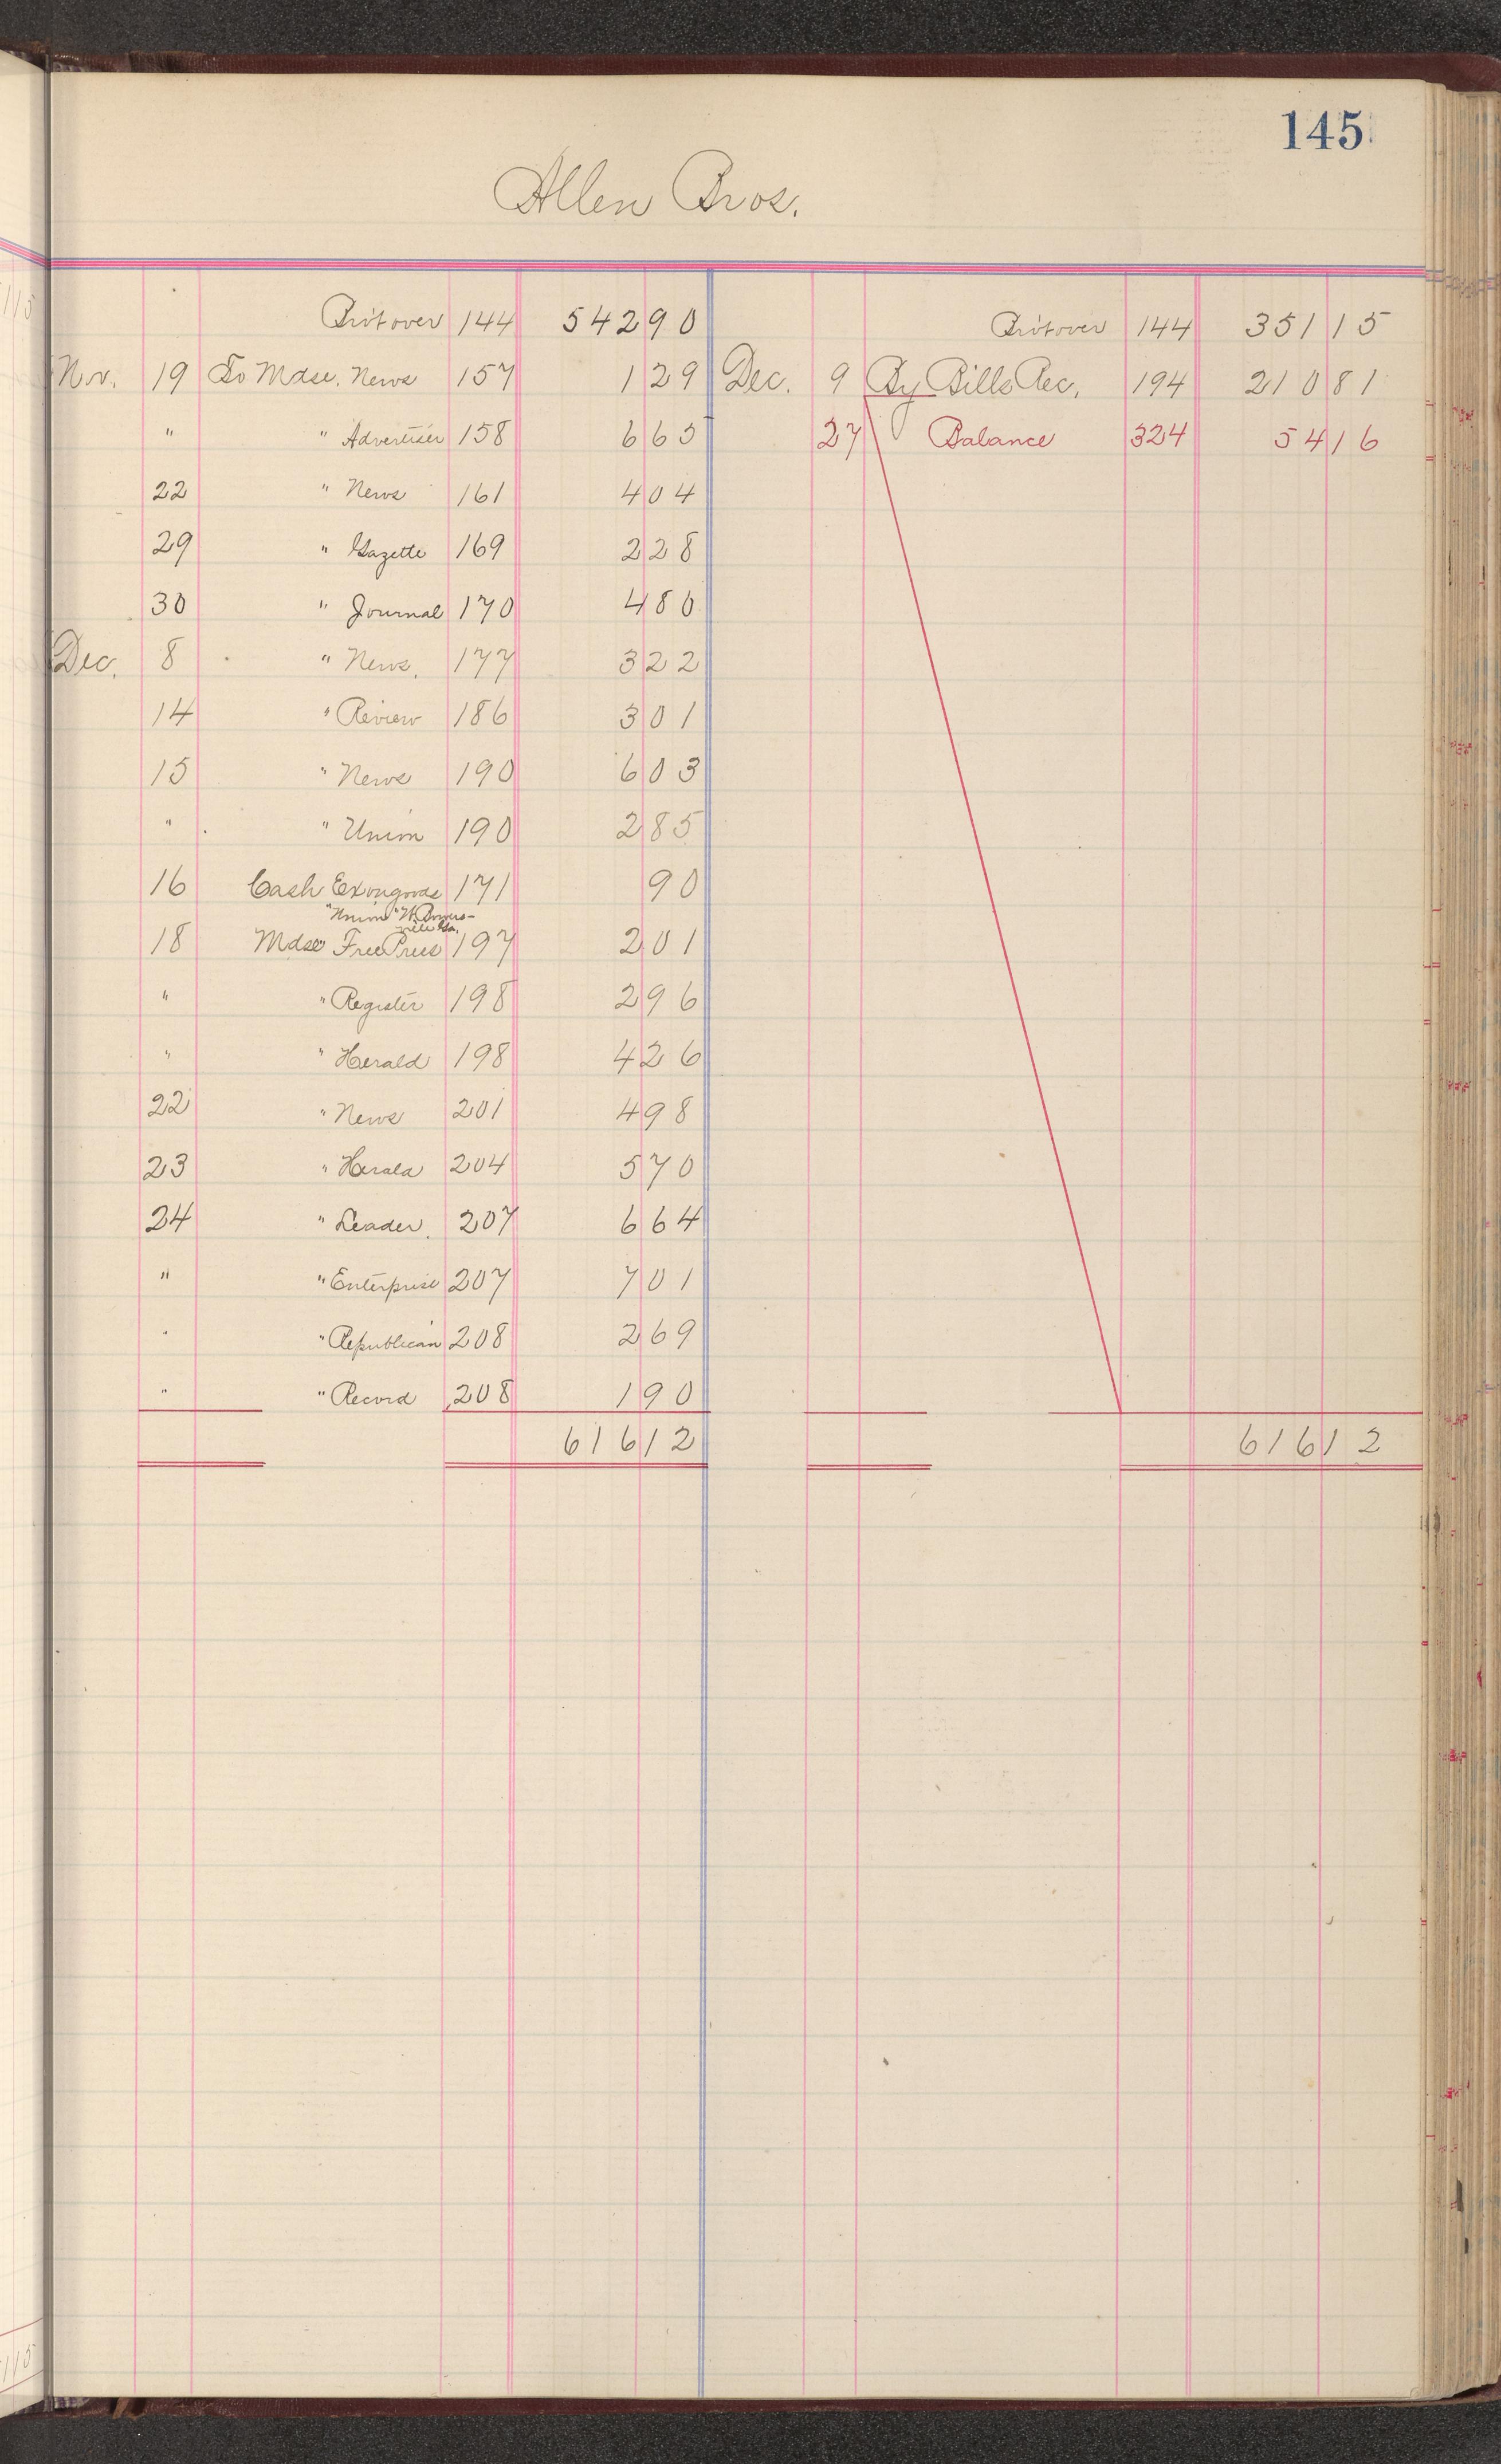 145
Allen Bros.
Brit over 144 542 90
Nov. 19 To Mdse. News 157 1 29
" " Advertiser 158 6 65
22 " News 161 4 04
29 " Gazette 169 2 28
30 " Journal 170 4 80
Dec. 8 " News. 177 3 22
14 " Review 186 3 01
15 " News 190 6 03
" " Union 190 2 85
16 Cash Ex on goods 171 90
"Union" W.
18 Mdse Free Press 197 2 01
" " Register 198 2 96
" " Herald 198 4 26
22 " News 201 4 98
23 " Herald 204 5 70
24 " Leader. 207 6 64
" " Enterprise 207 7 01
" " Republican 208 2 69
" " Record 208 1 90
616 12
Brit over 144 351 15
Dec. 9 By Bills Rec. 194 210 81
27 Balance 324 54 16
616 12
115
115